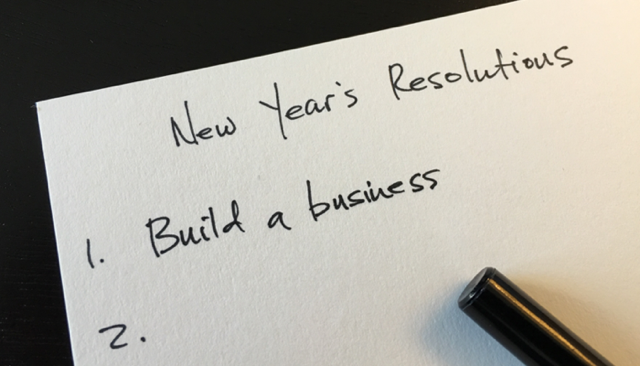 New Year's Resolutions
1. Build a business
2.